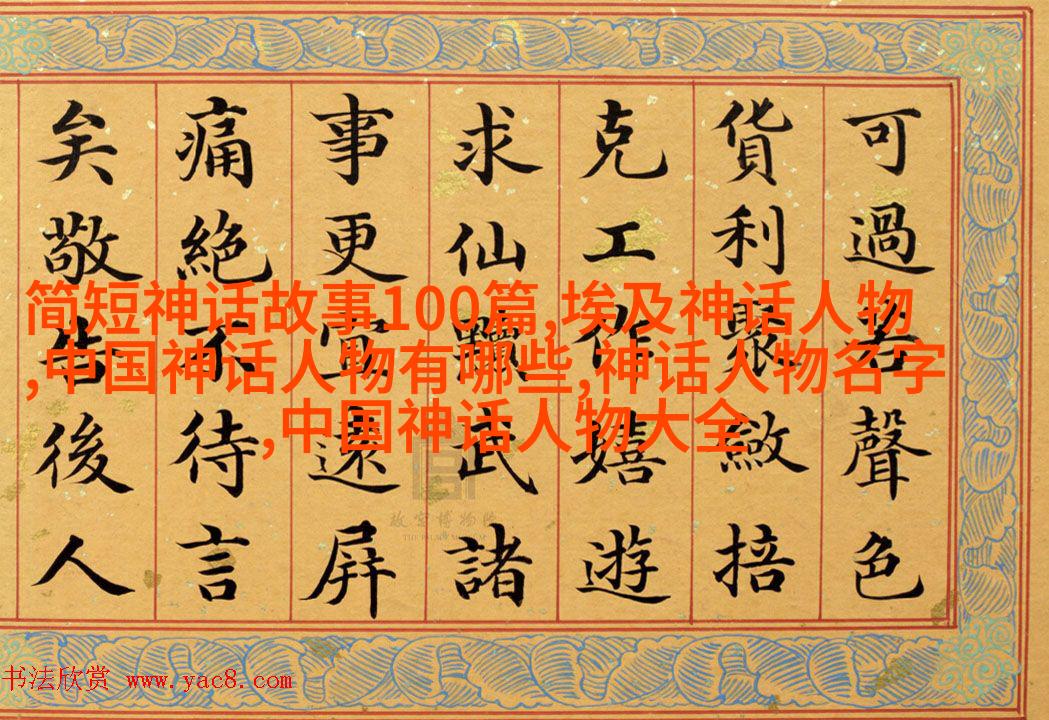 可過若聲色
貨利聚斂掊
克工作嬉遊
求仙黷武諸
事更宜遠屏
痛絕不待言
矣敬告後人
简短神话故事100篇,埃及神话人物
,中国神话人物有哪些,神话人物名字
,中国神话人物大全
故宫博物院
THE PALACE MUSEUM
书法欣赏 www.yac8.com